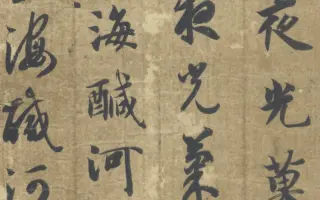 夜光菓
夜光菓
海醎河
海醎河